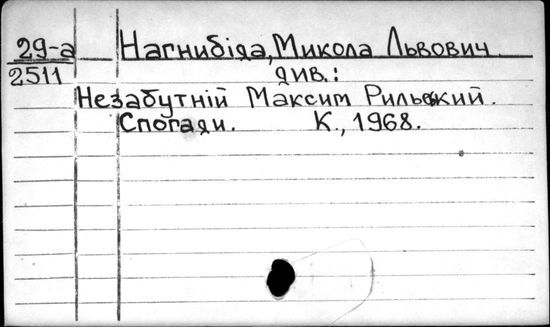 29-а Нагнибіда, Микола Львович
2511 див.:
Незабутній Максим Рильский.
Спогади. К., 1968.